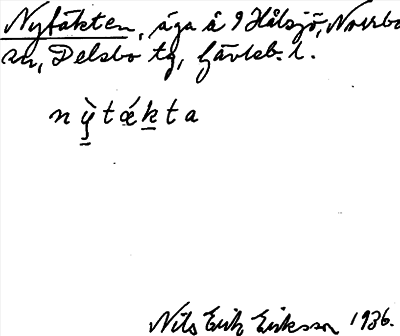 Nytäkten, äga å 9 Hålsjö, Norrbo
sn, Delsbo tg, Gävleb. l.
nỳtǽkta
Nils Erik Eriksson 1936.